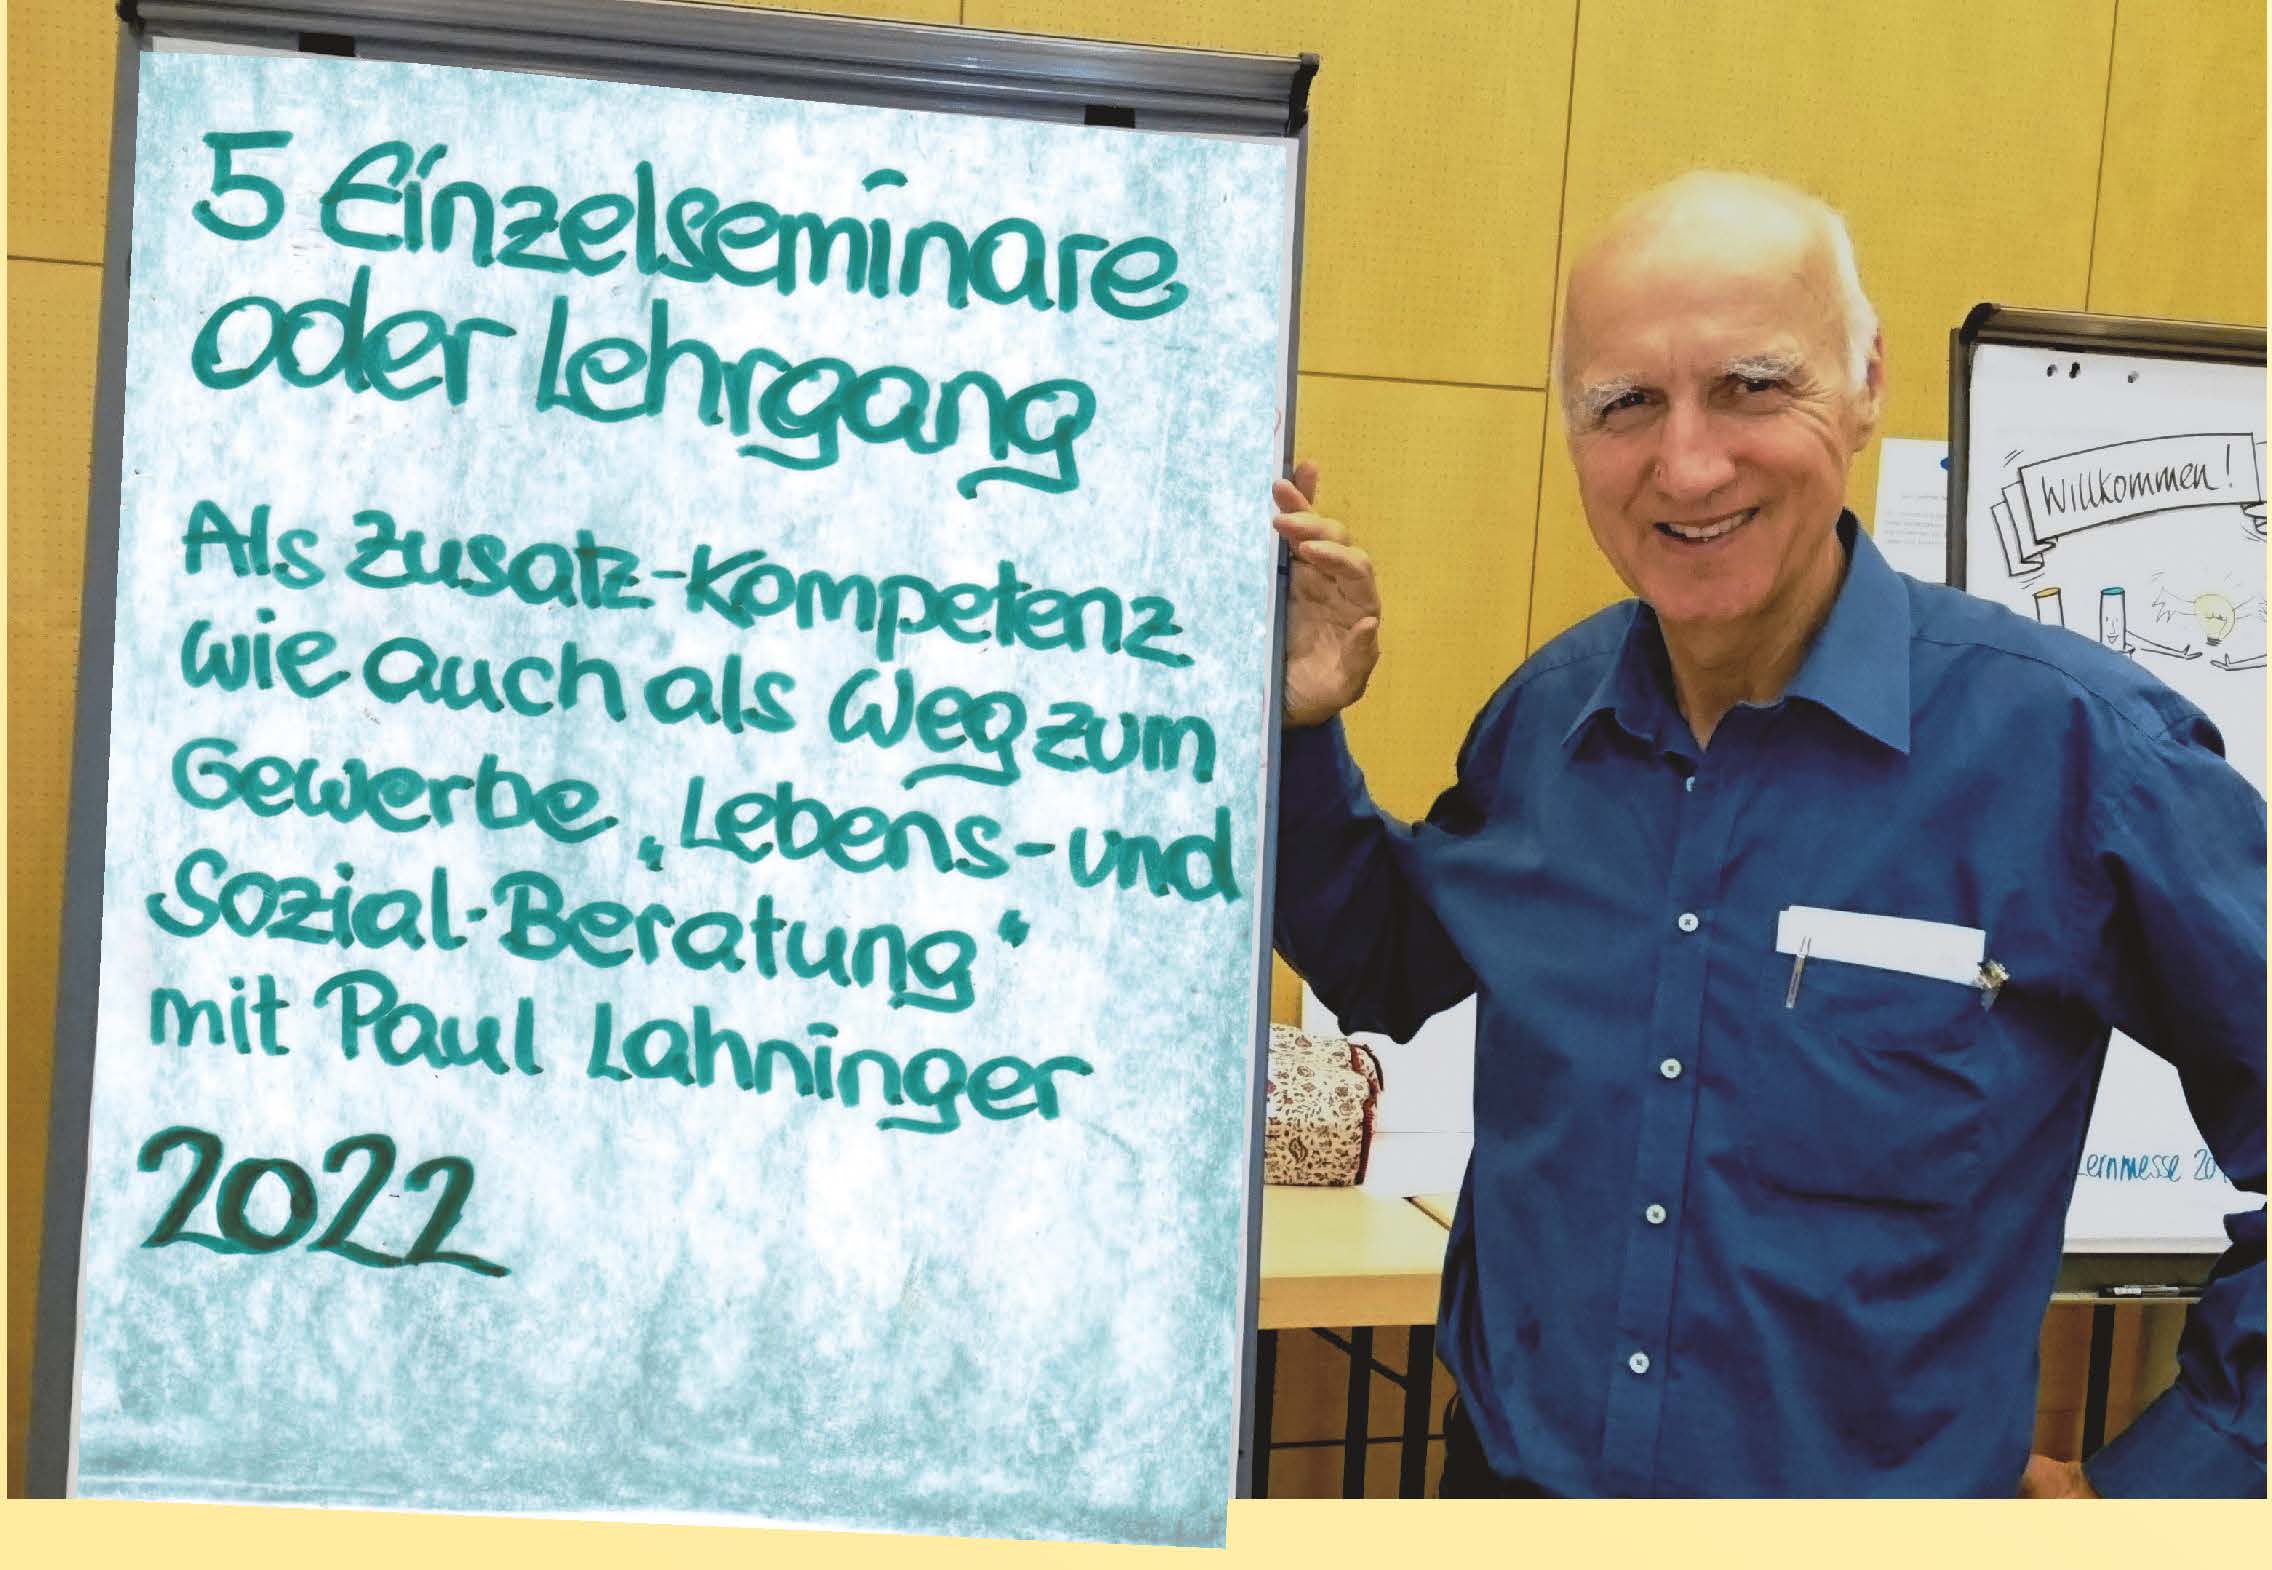 5 Einzelseminare
oder Lehrgang
Als Zusatz-Kompetenz
wie auch als Weg zum
Gewerbe „Lebens- und
Sozial-Beratung“
mit Paul Lahninger
2022
Willkommen!
Lernmesse